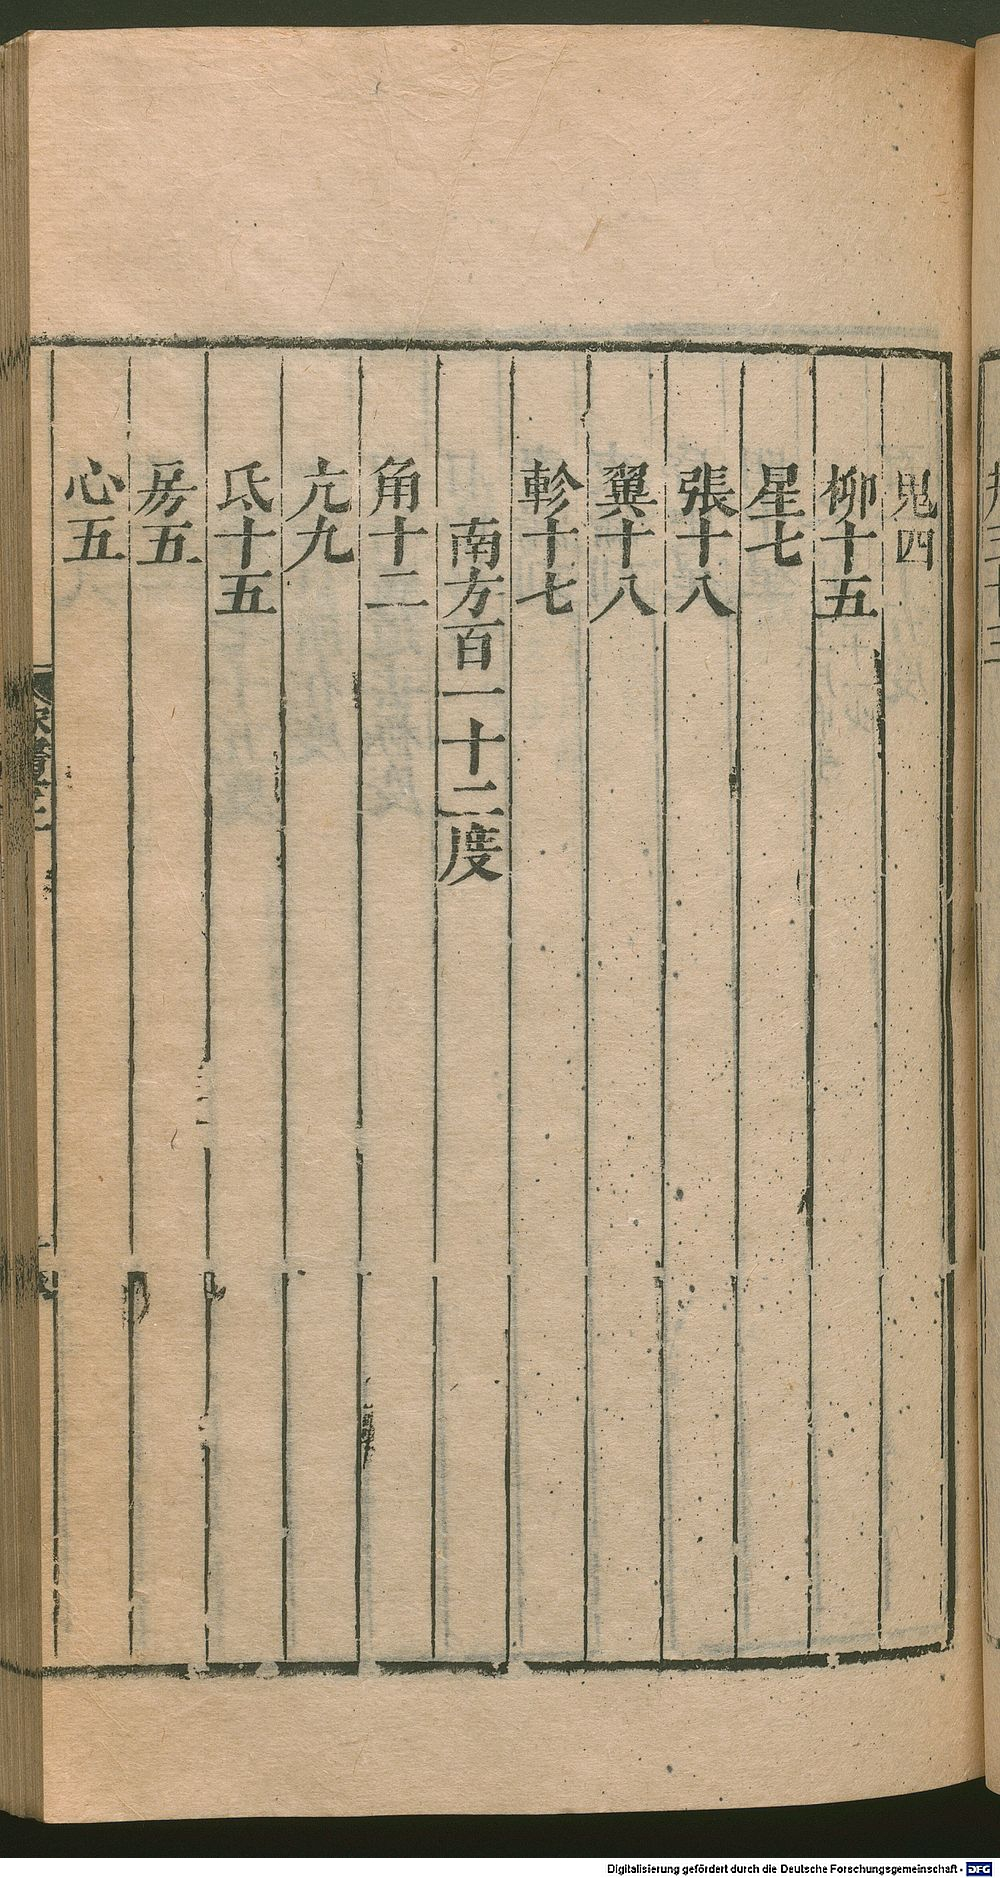 鬼四
柳十五
星七
張十八
翼十八
軫十七
南方百一十二度
角十二
亢九
氐十五
房五
心五
Digitalisierung gefördert durch die Deutsche Forschungsgemeinschaft - DFG